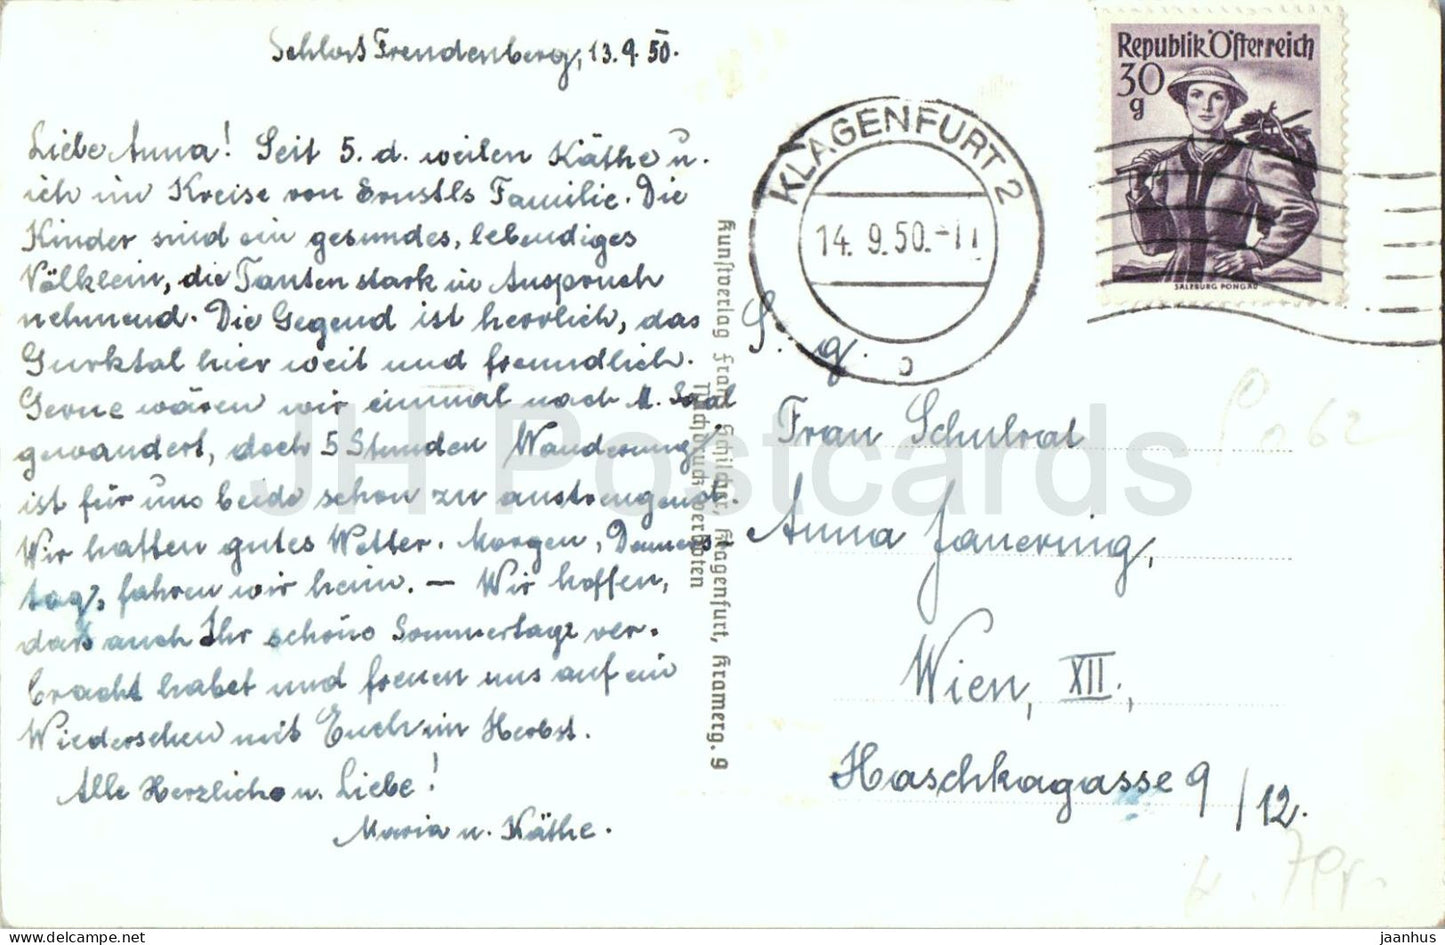 Schloss Freudenberg, 13.9.50.
Liebe Anna! Seit 5. d. weilen Käthe u.
ich im Kreise von Ernstls Familie. Die
Kinder sind ein gesundes, lebendiges
Völklein, die Tanten stark in Anspruch
nehmend. Die Gegend ist herrlich, das
Gurktal hier weit und freundlich.
Gerne wären wir einmal nach M. Saal
gewandert, doch 5 Stunden Wanderung
ist für uns beide schon zu anstrengend.
Wir hatten gutes Wetter. Morgen, Donners
tag, fahren wir heim. — Wir hoffen,
dass auch Ihr schöne Sommertage ver-
bracht habet und freuen uns auf ein
Wiedersehen mit Euch im Herbst.
Alle Herzliche u. Liebe!
Maria u. Käthe.
Kunstverlag Franz Schilcher, Klagenfurt, Kramerg. 9
Nachdruck verboten
KLAGENFURT 2
14. 9.50.-11
Republik Österreich
30
g
SALZBURG PONGAU
S. g.
Frau Schulrat
Anna Jauernig,
Wien, XII.,
Haschkagasse 9/12.
JH Postcards
delcampe.net
jaanhus